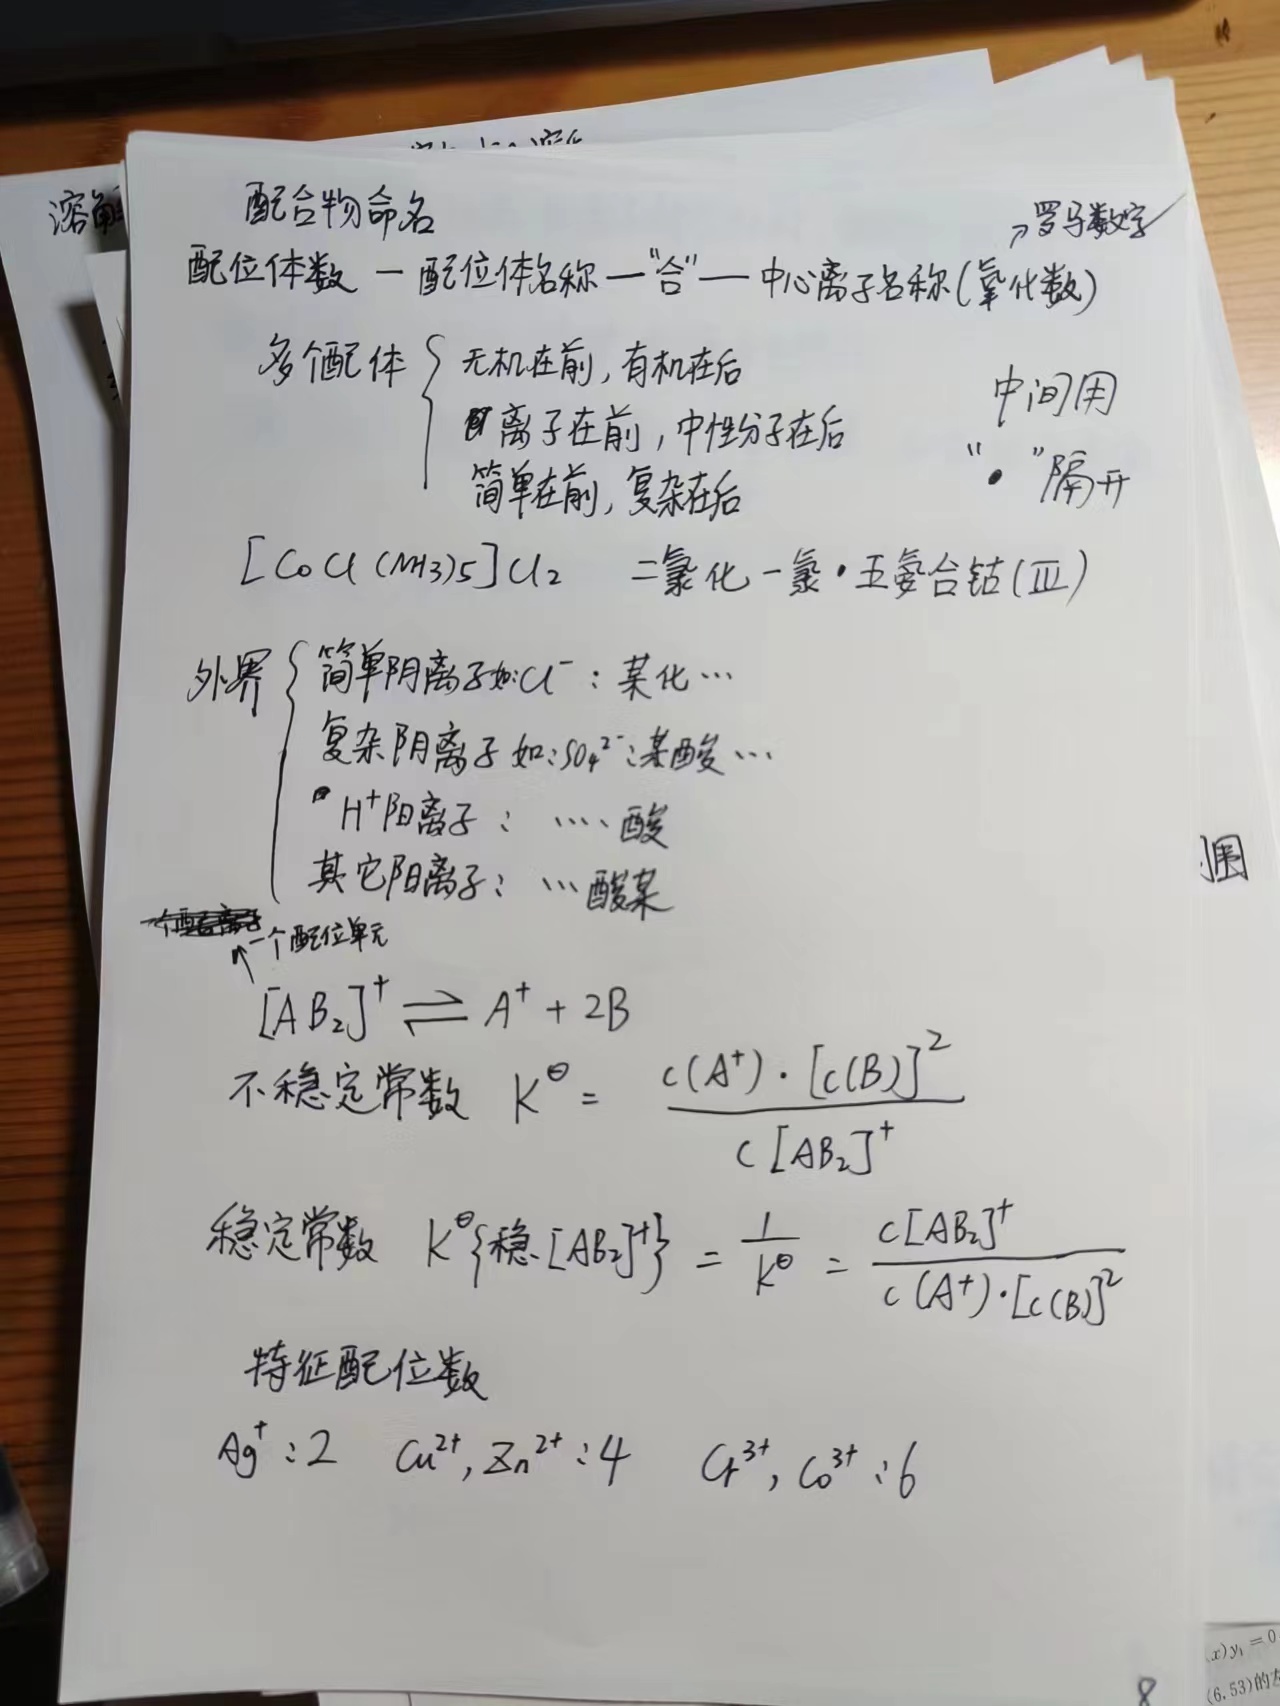 溶解
配合物命名
→罗马数字
配位体数—配位体名称—"合"—中心离子名称(氧化数)
多个配体{无机在前,有机在后
离子在前,中性分子在后
简单在前,复杂在后
中间用
"•"隔开
[CoCl(NH3)5]Cl₂ 二氯化一氯•五氨合钴(Ⅲ)
外界{简单阴离子如:Cl⁻:某化…
复杂阴离子如:SO₄²⁻:某酸…
H⁺阳离子:….酸
其它阳离子:…酸某
↑一个配位单元
[AB₂]⁺⇌A⁺+2B
不稳定常数 K^θ = c(A⁺)·[c(B)]² / c[AB₂]⁺
稳定常数 K^θ{稳·[AB₂]⁺} = 1/K^θ = c[AB₂]⁺ / c(A⁺)·[c(B)]²
特征配位数
Ag⁺:2 Cu²⁺,Zn²⁺:4 Cr³⁺,Co³⁺:6
8
(x)y₁=0
(6.53)的